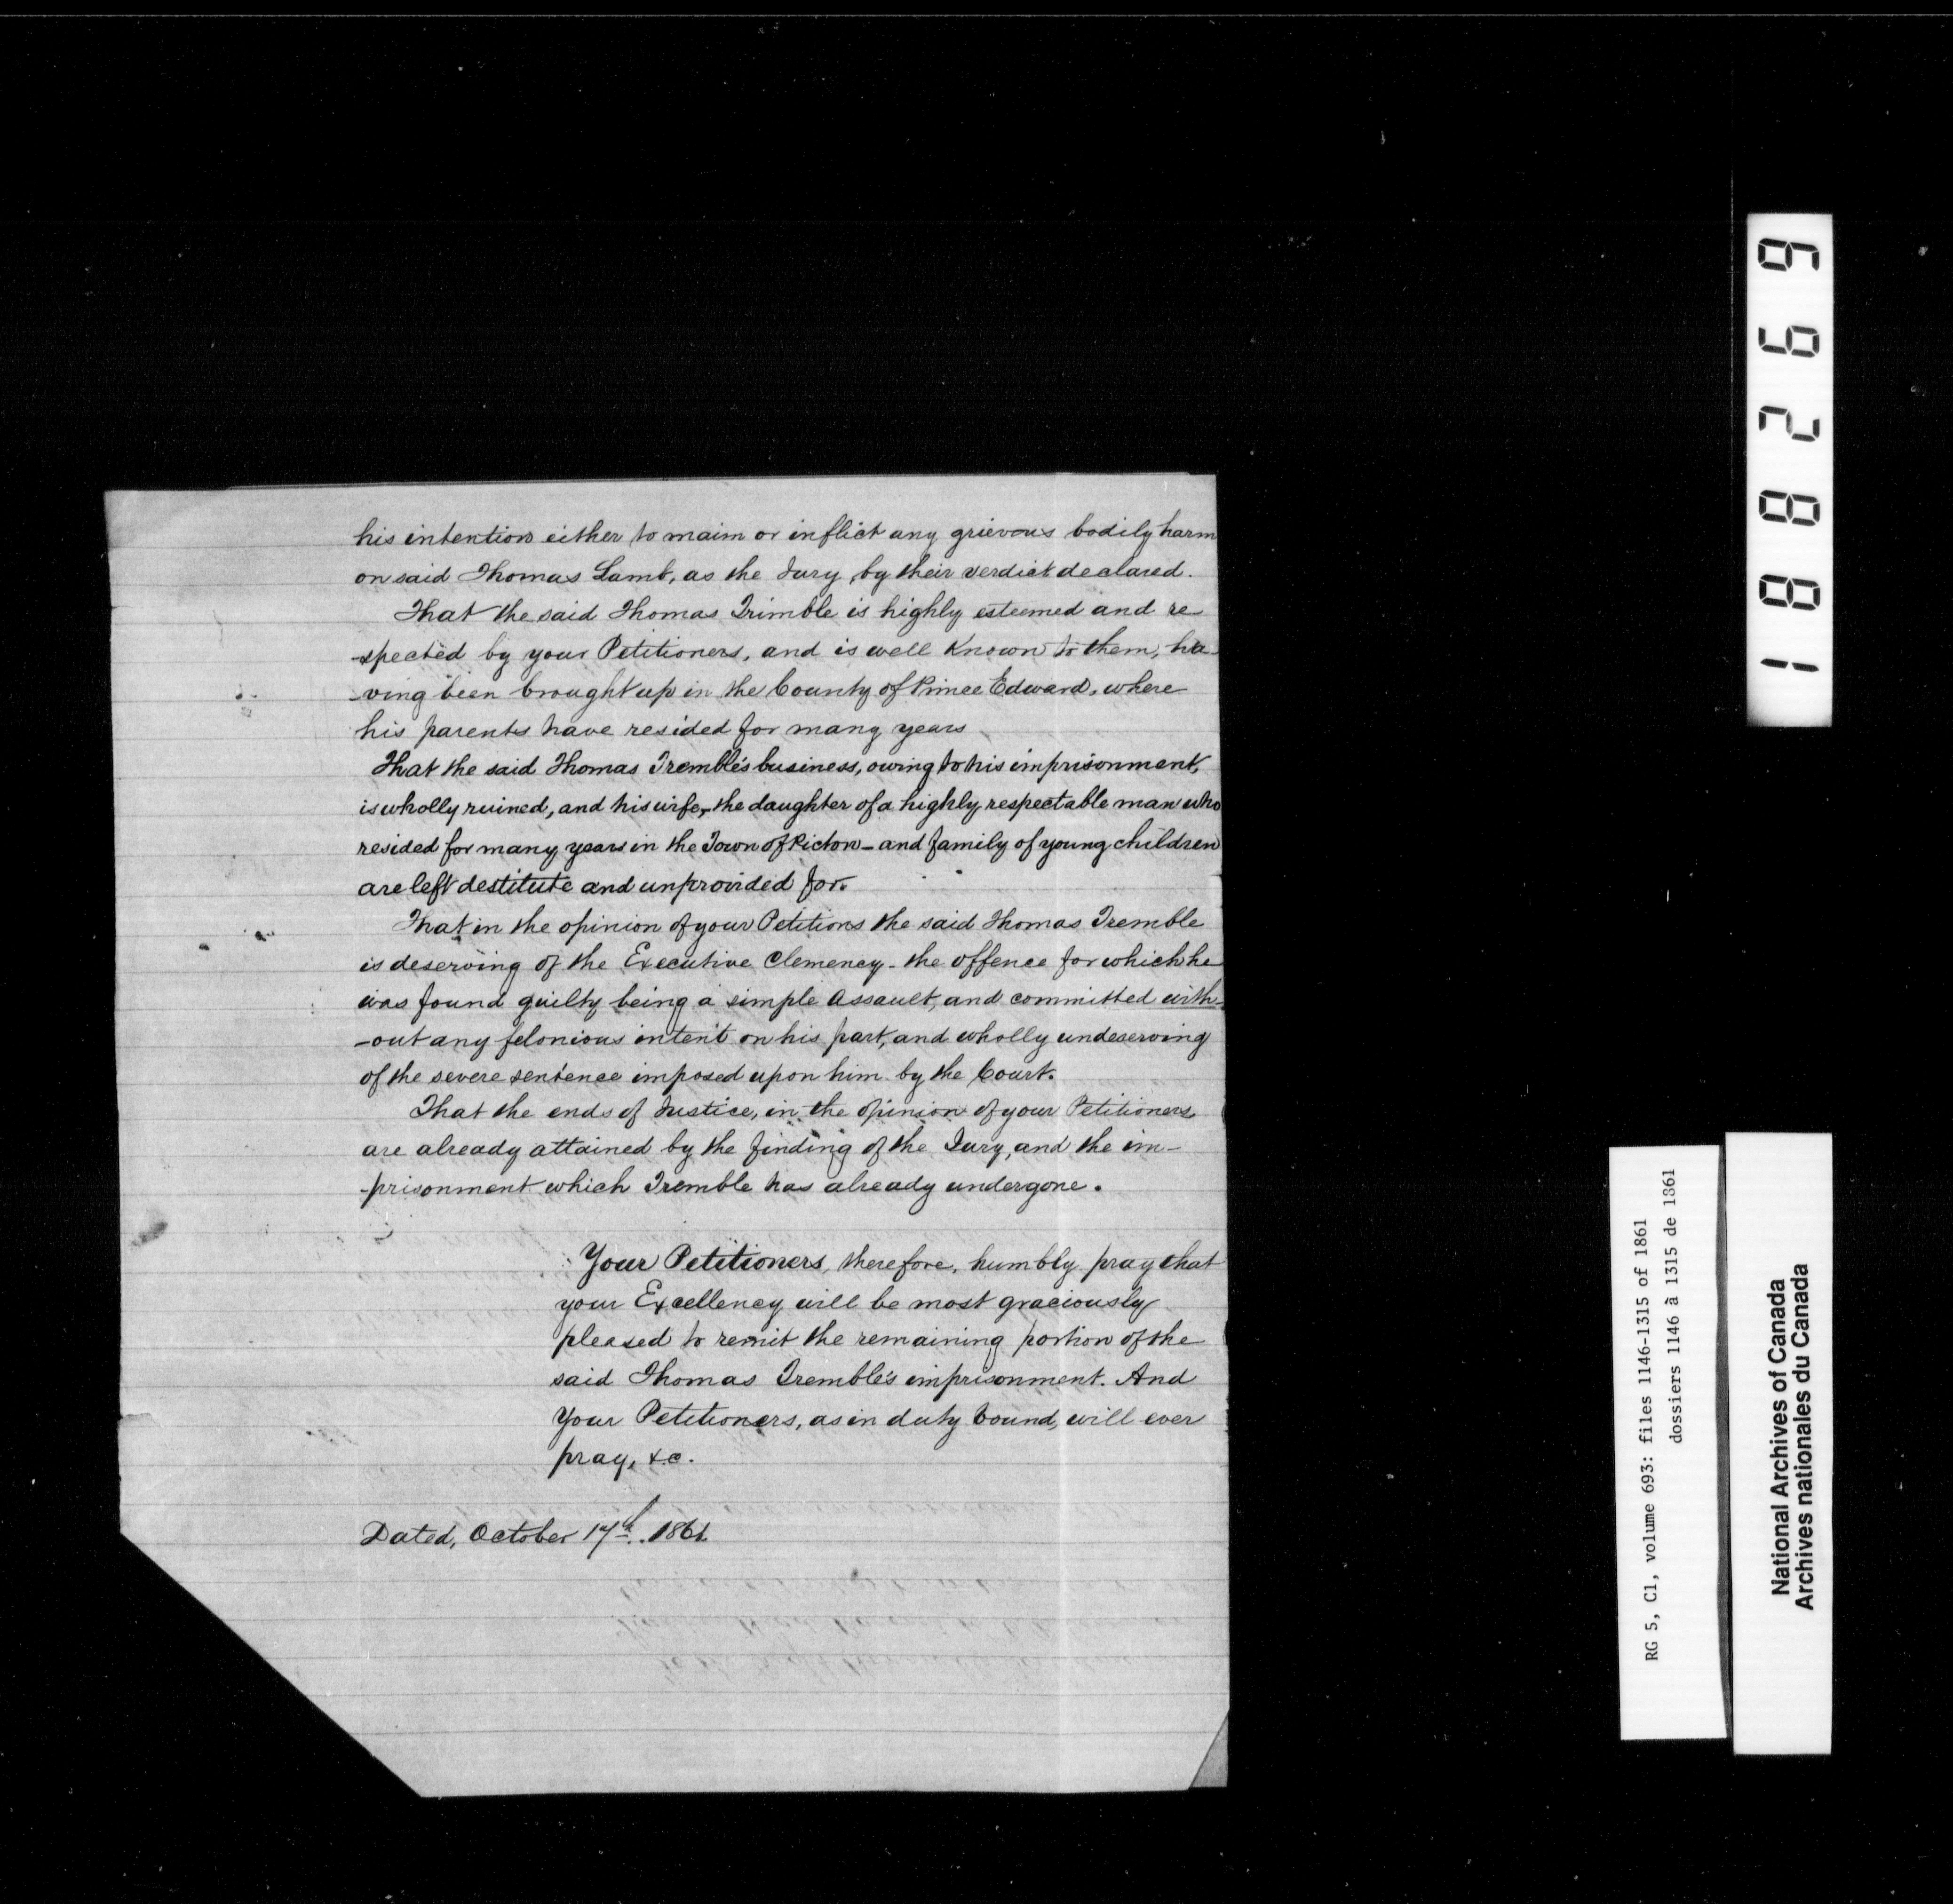 his intention either to maim or inflict any grievous bodily harm
on said Thomas Lamb, as the Jury, by their verdict declared.
That the said Thomas Trimble is highly esteemed and re-
-spected by your Petitioners, and is well Known to them, ha-
-ving been brought up in the County of Prince Edward, where
his parents have resided for many years
That the said Thomas Tremble's business, owing to his imprisonment,
is wholly ruined, and his wife, - the daughter of a highly respectable man who
resided for many years in the Town of Picton - and family of young children
are left destitute and unprovided for.
That in the opinion of your Petitions the said Thomas Tremble
is deserving of the Executive Clemency - the offence for which he
was found guilty being a simple Assault, and committed with-
-out any felonious intent on his part, and wholly undeserving
of the severe sentence imposed upon him by the Court.
That the ends of Justice, in the opinion of your Petitioners
are already attained by the finding of the Jury, and the im-
-prisonment which Tremble has already undergone.
Your Petitioners, therefore, humbly pray that
your Excellency will be most graciously
pleased to remit the remaining portion of the
said Thomas Tremble's imprisonment. And
Your Petitioners, as in duty bound, will ever
pray, &c.
Dated, October 17th. 1861.
188269
RG 5, C1, volume 693: files 1146-1315 of 1861
dossiers 1146 à 1315 de 1861
National Archives of Canada
Archives nationales du Canada